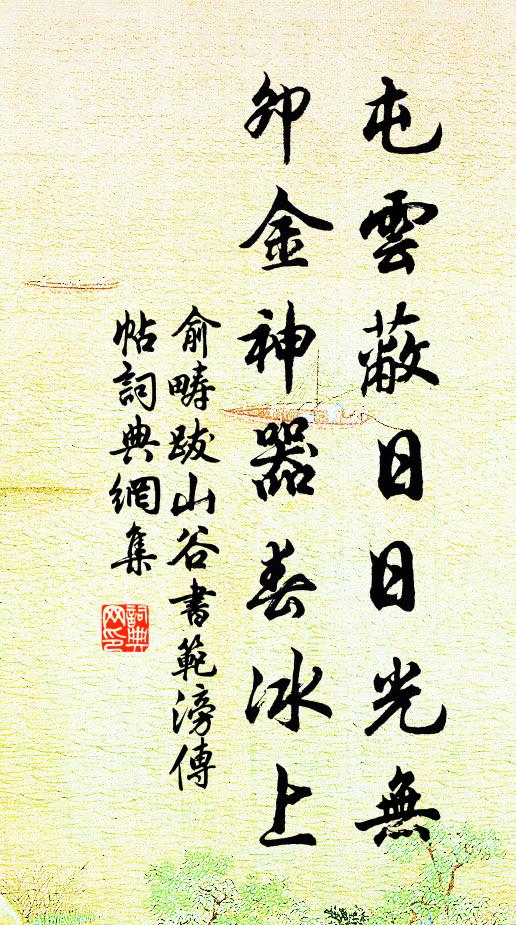 屯雲蔽日日光無
卯金神器春冰上
俞疇跋山谷書範滂傳
帖詞典網集
詞典
网印